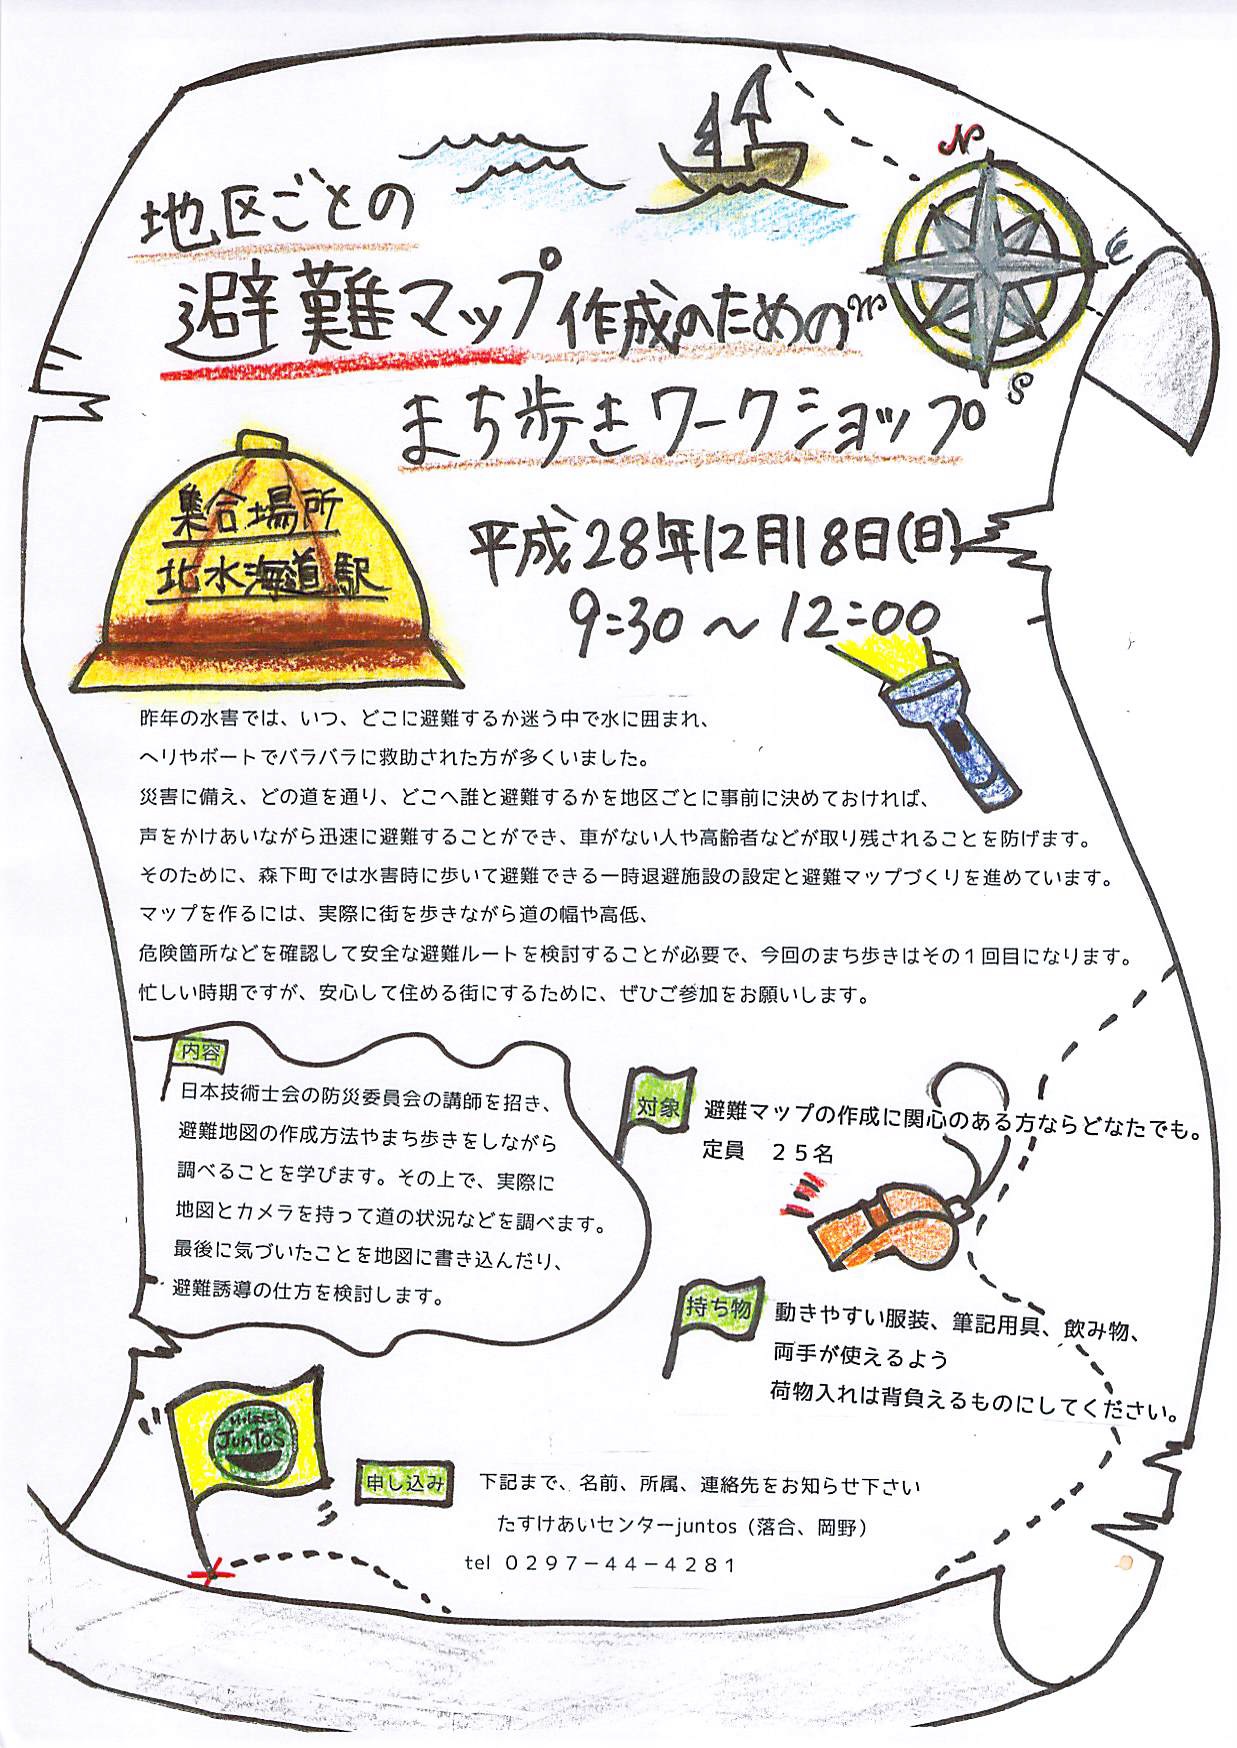 地区ごとの
避難マップ作成のための
まち歩きワークショップ
N
E
W
S
集合場所
北水海道駅
平成28年12月18日(日)
9:30～12:00
昨年の水害では、いつ、どこに避難するか迷う中で水に囲まれ、
ヘリやボートでバラバラに救助された方が多くいました。
災害に備え、どの道を通り、どこへ誰と避難するかを地区ごとに事前に決めておければ、
声をかけあいながら迅速に避難することができ、車がない人や高齢者などが取り残されることを防げます。
そのために、森下町では水害時に歩いて避難できる一時退避施設の設定と避難マップづくりを進めています。
マップを作るには、実際に街を歩きながら道の幅や高低、
危険箇所などを確認して安全な避難ルートを検討することが必要で、今回のまち歩きはその１回目になります。
忙しい時期ですが、安心して住める街にするために、ぜひご参加をお願いします。
内容
日本技術士会の防災委員会の講師を招き、
避難地図の作成方法やまち歩きをしながら
調べることを学びます。その上で、実際に
地図とカメラを持って道の状況などを調べます。
最後に気づいたことを地図に書き込んだり、
避難誘導の仕方を検討します。
対象
避難マップの作成に関心のある方ならどなたでも。
定員　２５名
持ち物
動きやすい服装、筆記用具、飲み物、
両手が使えるよう
荷物入れは背負えるものにしてください。
JUNTOS
申し込み
下記まで、名前、所属、連絡先をお知らせ下さい
たすけあいセンターjuntos（落合、岡野）
tel ０２９７－４４－４２８１